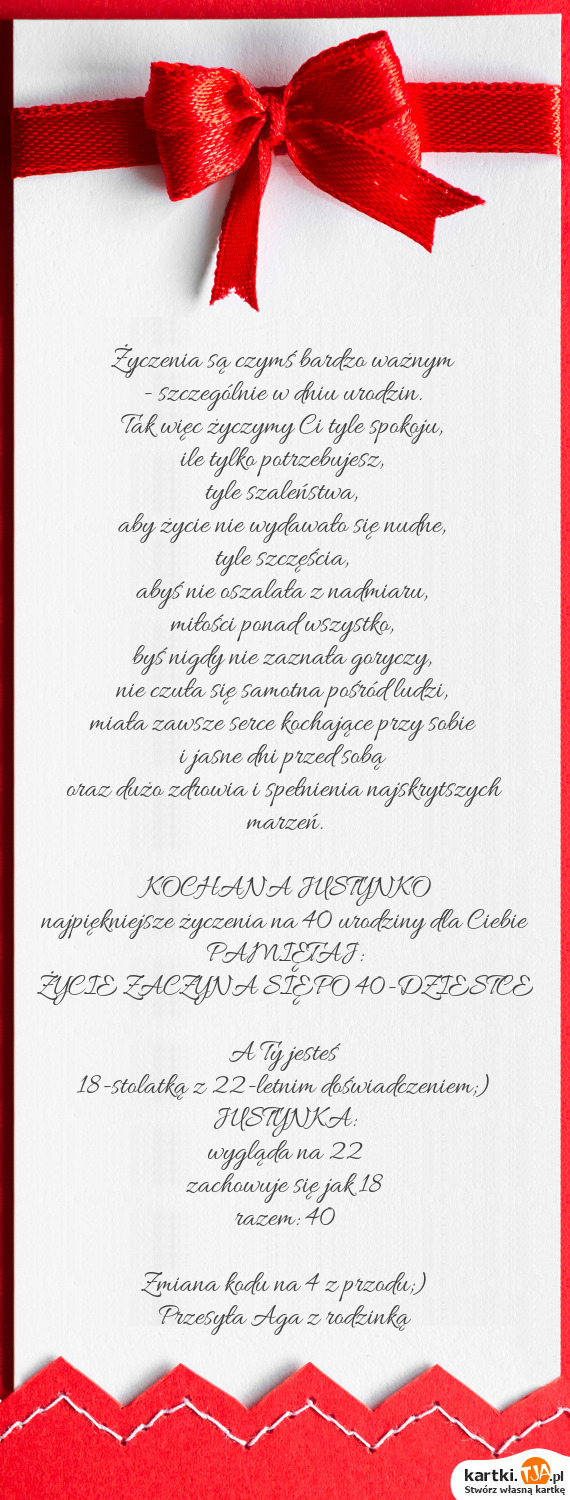 Życzenia są czymś bardzo ważnym
- szczególnie w dniu urodzin.
Tak więc życzymy Ci tyle spokoju,
ile tylko potrzebujesz,
tyle szaleństwa,
aby życie nie wydawało się nudne,
tyle szczęścia,
abyś nie oszalała z nadmiaru,
miłości ponad wszystko,
byś nigdy nie zaznała goryczy,
nie czuła się samotna pośród ludzi,
miała zawsze serce kochające przy sobie
i jasne dni przed sobą
oraz dużo zdrowia i spełnienia najskrytszych
marzeń.
KOCHANA JUSTYNKO
najpiękniejsze życzenia na 40 urodziny dla Ciebie
PAMIĘTAJ:
ŻYCIE ZACZYNA SIĘ PO 40-DZIESTCE
A Ty jesteś
18-stolatką z 22-letnim doświadczeniem;)
JUSTYNKA:
wygląda na 22
zachowuje się jak 18
razem: 40
Zmiana kodu na 4 z przodu;)
Przesyła Aga z rodzinką
kartki.TJA.pl
Stwórz własną kartkę